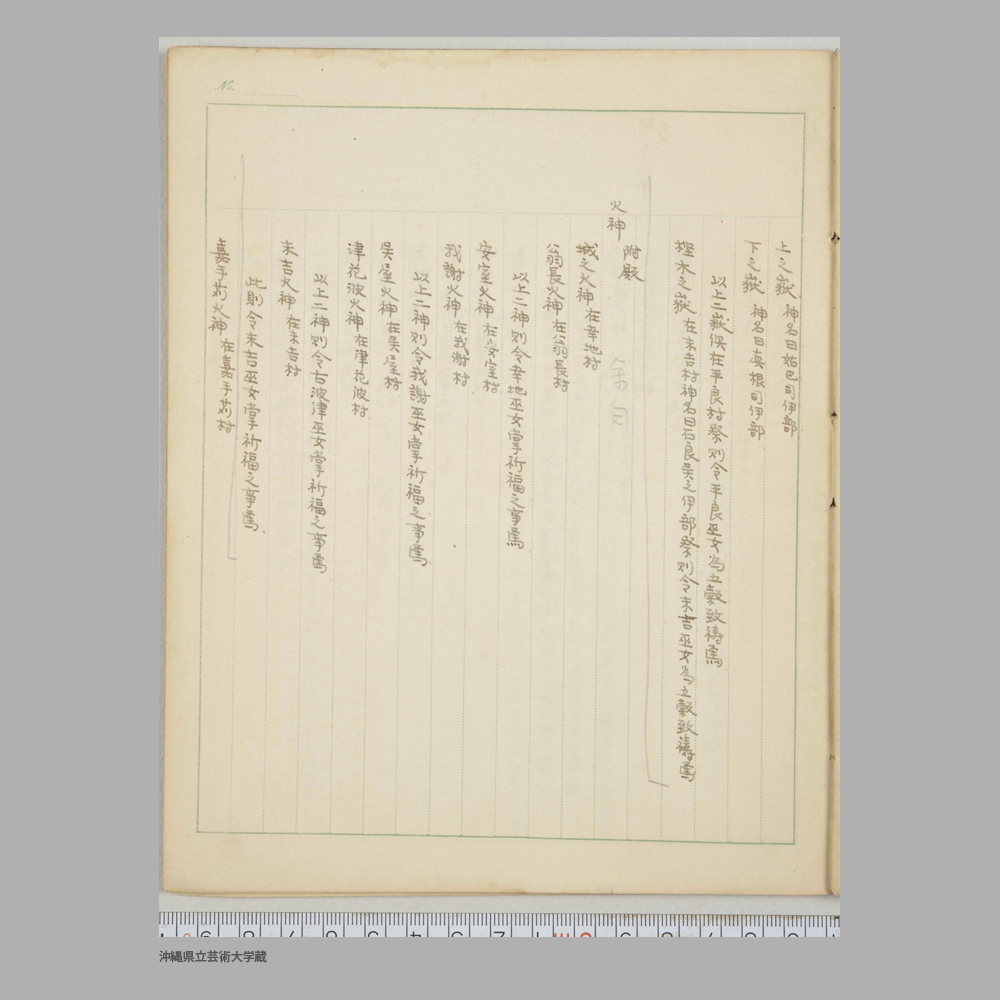 No.
上之嶽 神名曰姑巴司伊部
下之嶽 神名曰真根司伊部
以上二嶽俱在平良村祭則令平良巫女為五穀致禱焉
樫木之嶽 在末吉村神名曰石良吴之伊部祭則令末吉巫女為五穀致禱焉
附殿
火神
城之火神 在幸地村
翁長火神 在翁長村
以上二神則令幸地巫女掌祈福之事焉
安室火神 在安室村
我謝火神 在我謝村
以上二神則令我謝巫女掌祈福之事焉
吴屋火神 在吴屋村
津花波火神 在津花波村
以上二神則令古波津巫女掌祈福之事焉
末吉火神 在末吉村
此則令末吉巫女掌祈福之事焉
嘉手苅火神 在嘉手苅村
沖縄県立芸術大学蔵